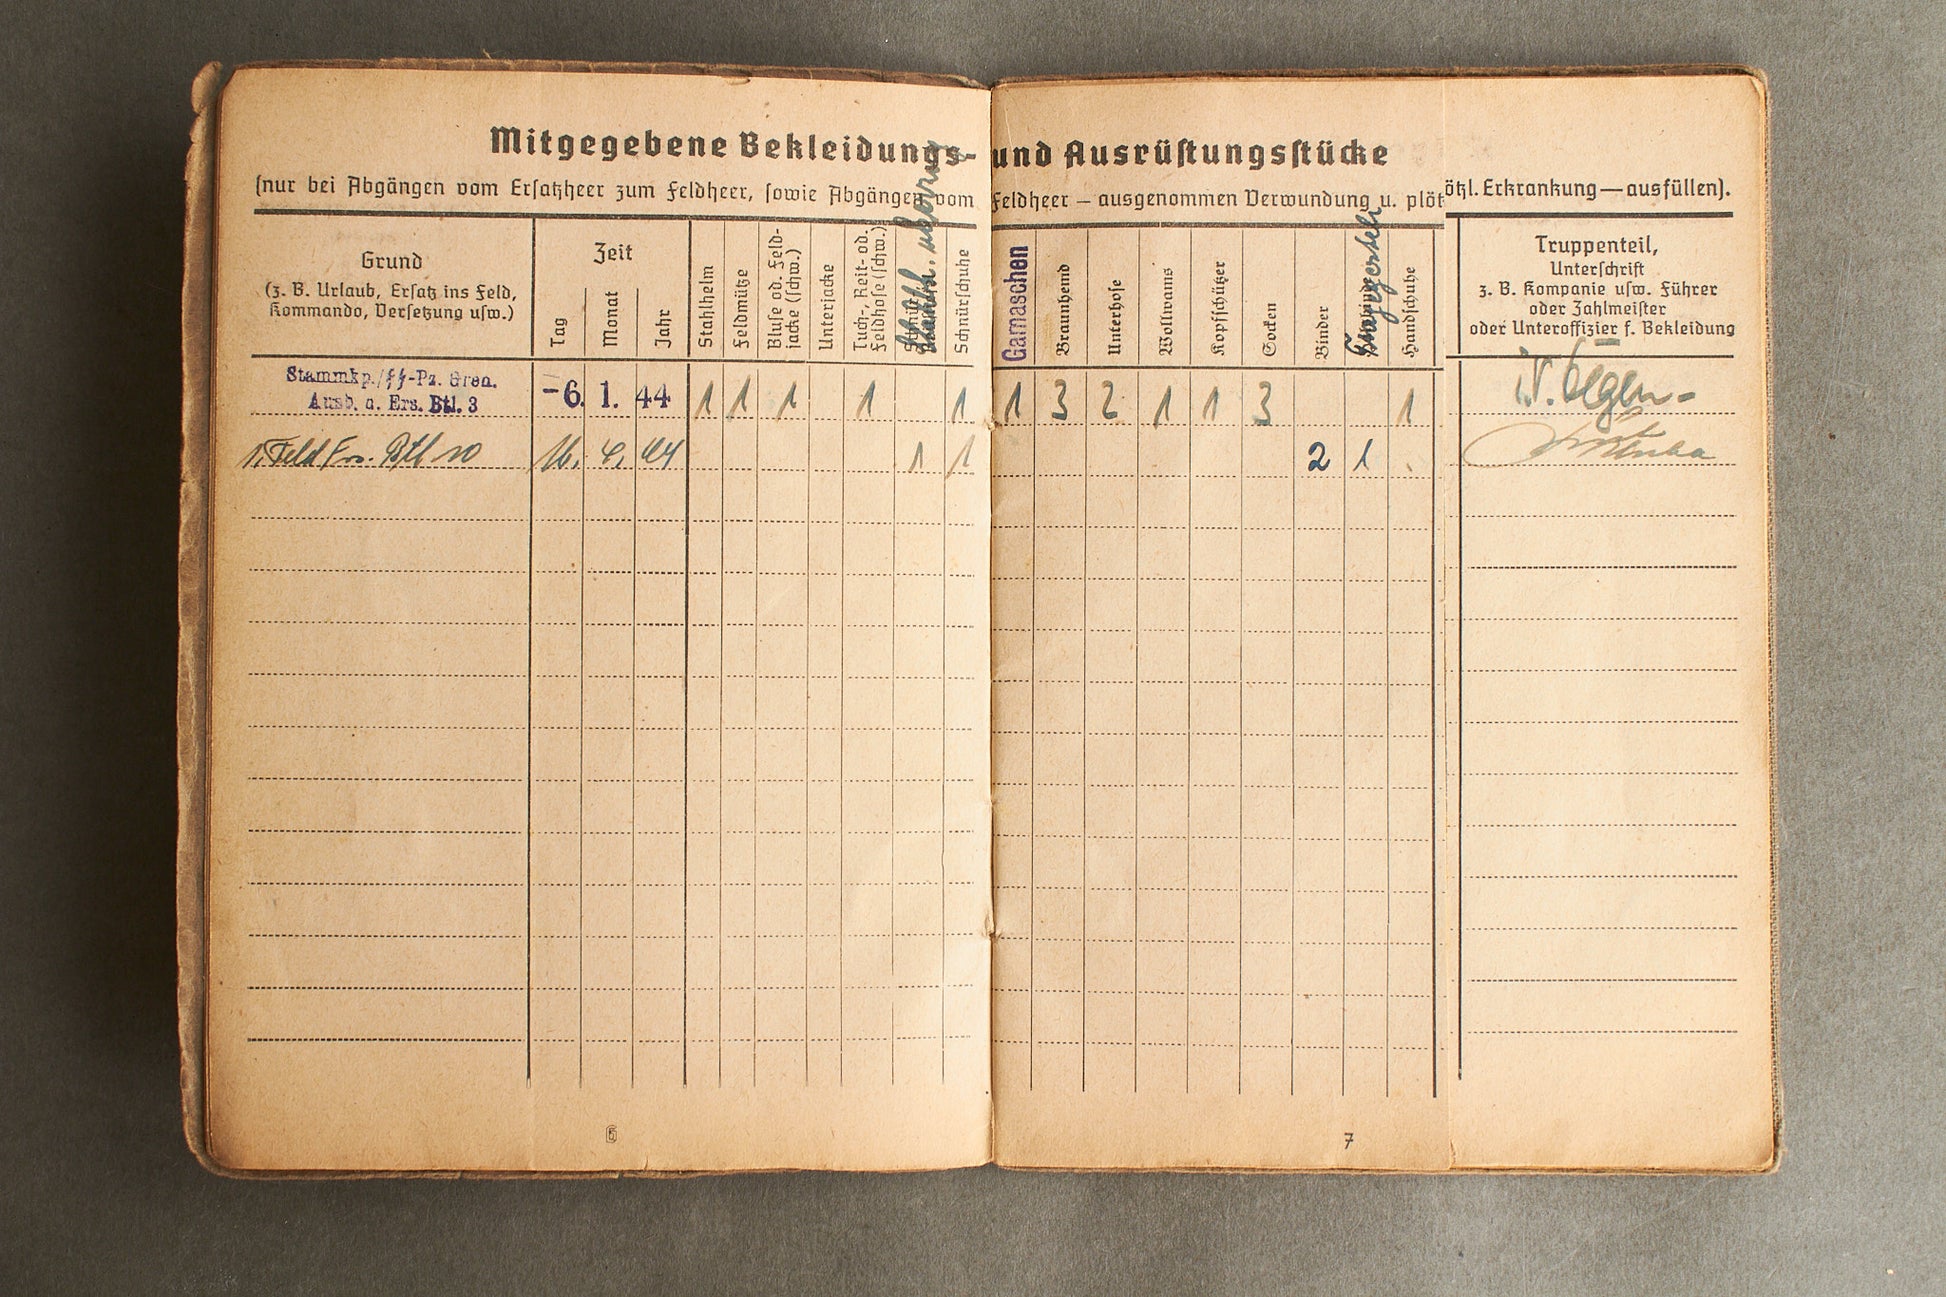 Mitgegebene Bekleidungs- und Ausrüstungsstücke
(nur bei Abgängen vom Ersatzheer zum Feldheer, sowie Abgängen vom Feldheer — ausgenommen Verwundung u. plötzl. Erkrankung — ausfüllen).
Grund
(z. B. Urlaub, Ersatz ins Feld,
Kommando, Versetzung usw.)
Zeit
Tag
Monat
Jahr
Stahlhelm
Feldmütze
Bluse od. Feld-
jacke (schw.)
Unterjacke
Tuch-, Reit- od.
Feldhose (schw.)
Schnürschuhe
Gamaschen
Braunhemd
Unterhose
Wollwams
Kopfschützer
Socken
Binder
Traggestell
Handschuhe
Truppenteil,
Unterschrift
z. B. Kompanie usw. Führer
oder Zahlmeister
oder Unteroffizier f. Bekleidung
Stammkp./ᛋᛋ-Pz. Gren.
Ausb. u. Ers. Btl. 3
-6. 1. 44 1 1 1 1 1 1 3 2 1 1 3 1
1. Feld Ers. Btl 10 16. 4. 44 1 1 2 1
6
7